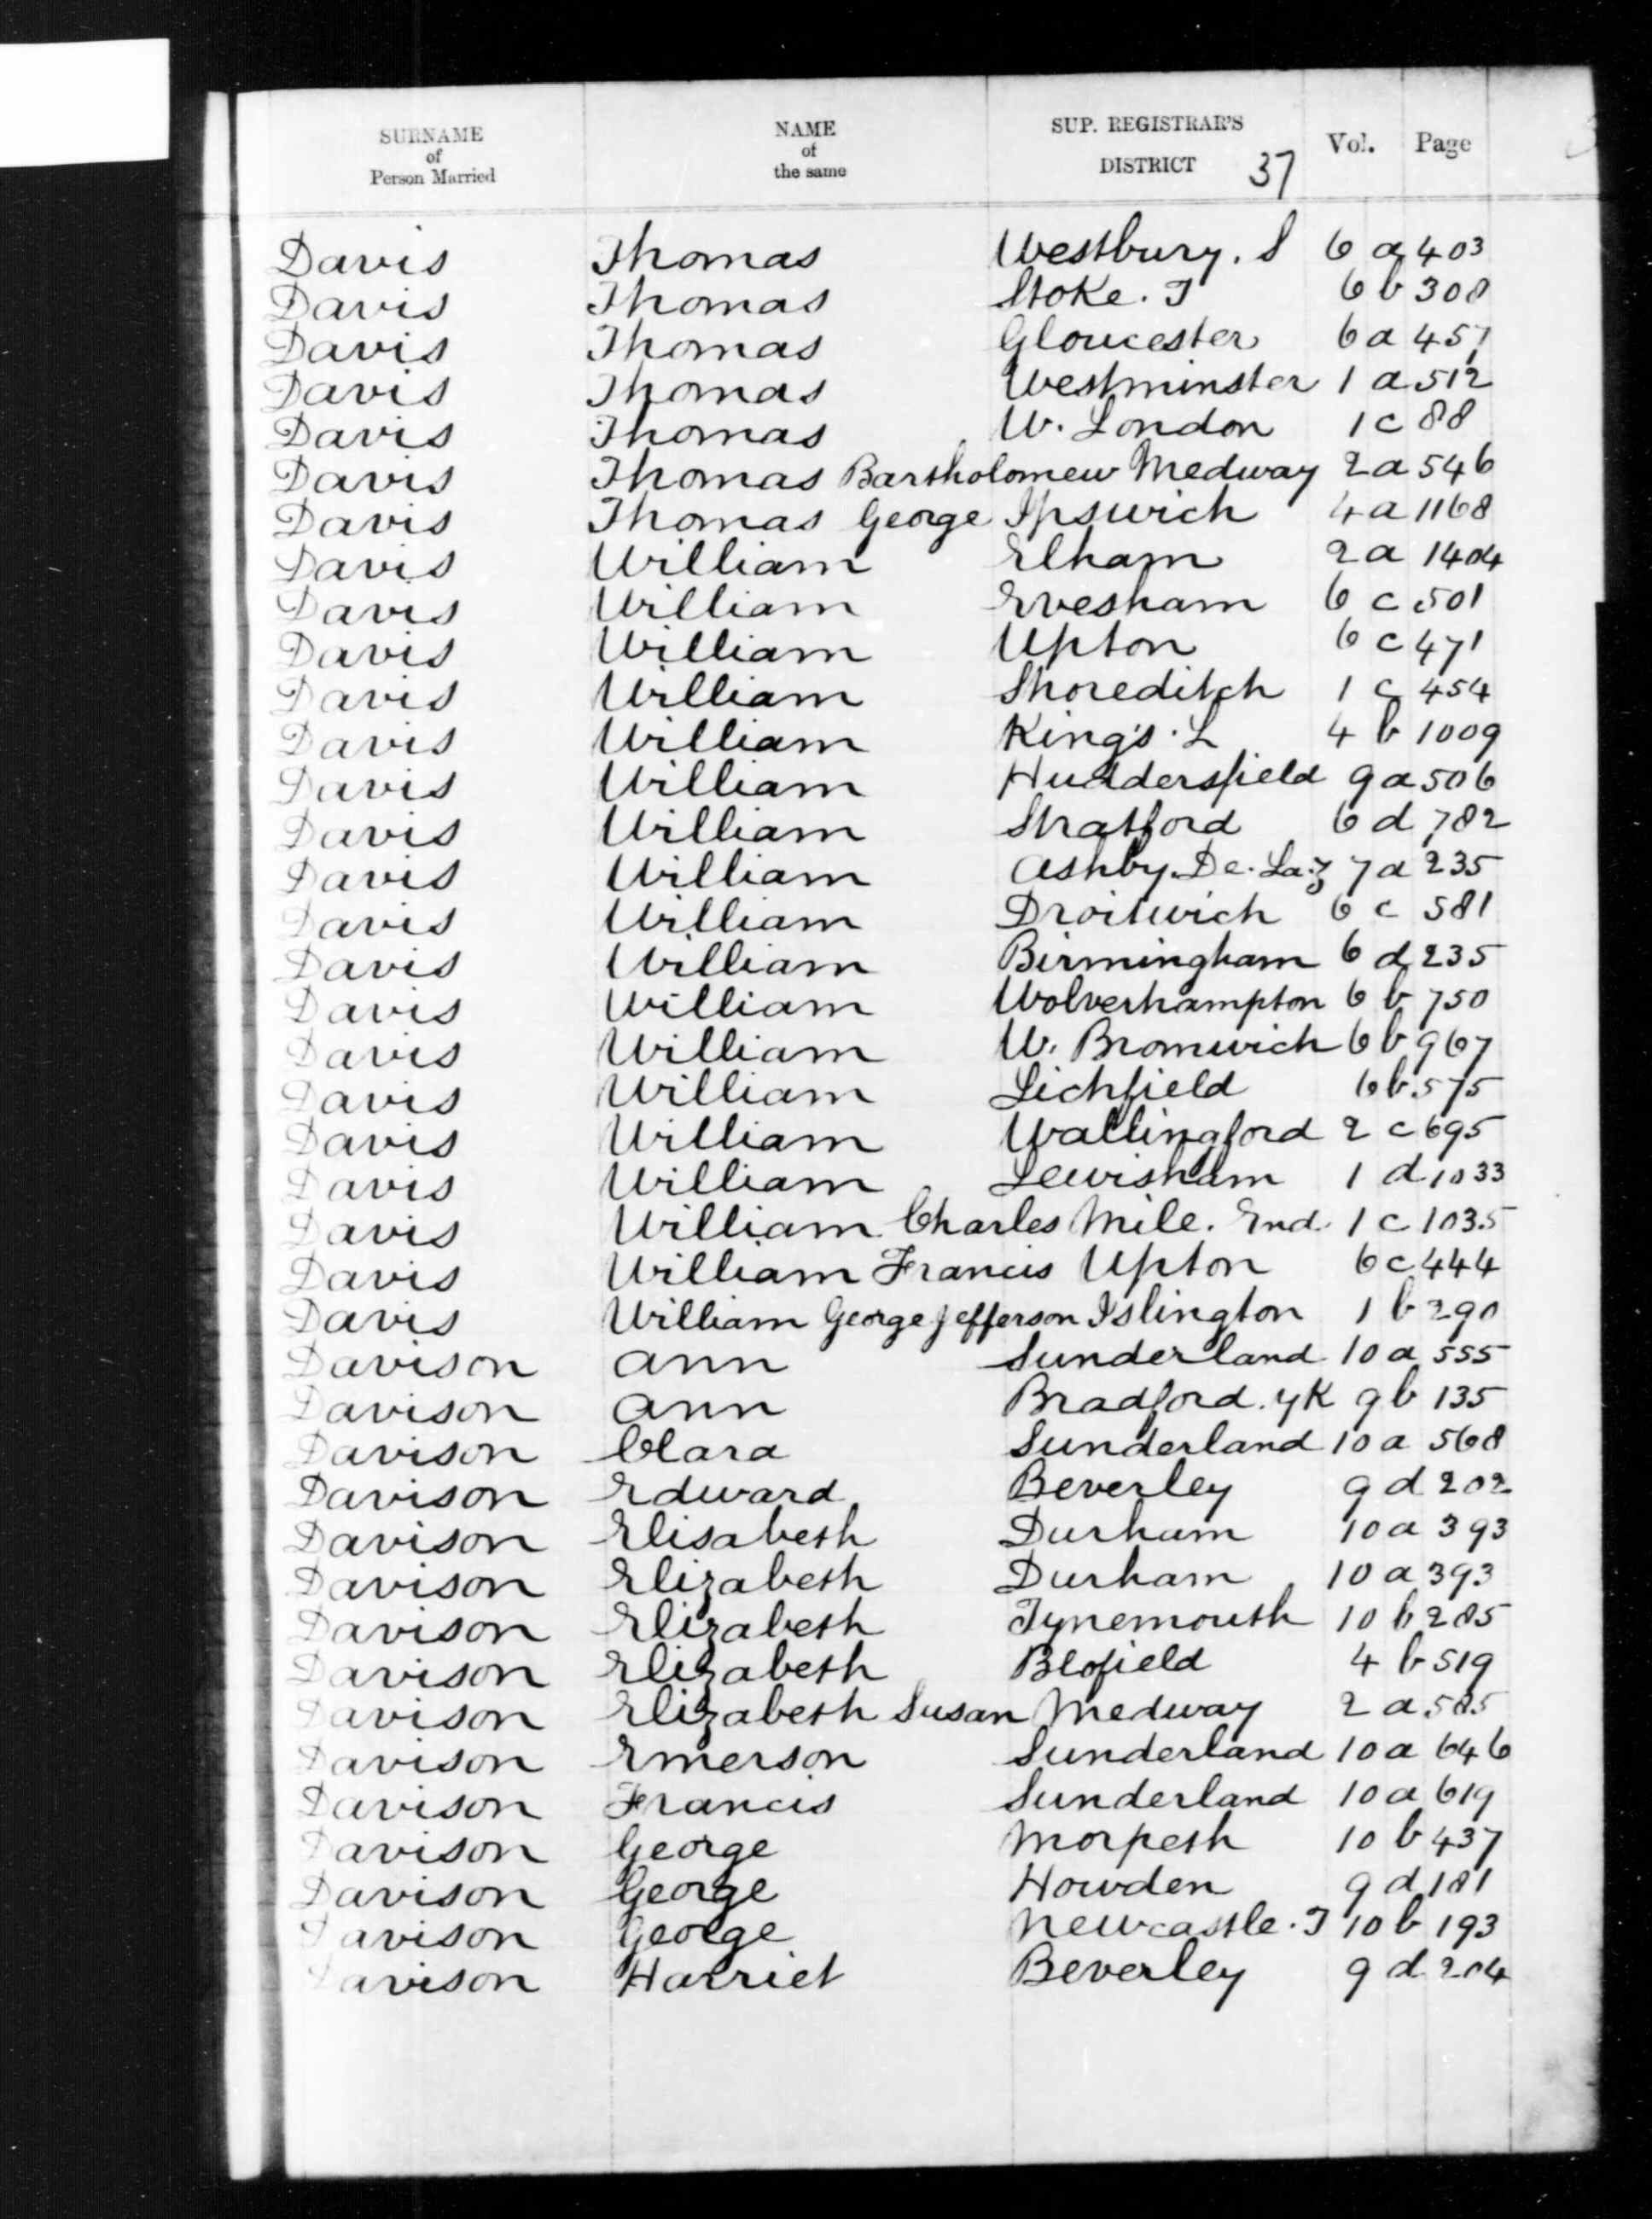 SURNAME of Person Married NAME of the same SUP. REGISTRAR'S DISTRICT 37 Vol. Page
Davis Thomas Westbury. S 6 a 403
Davis Thomas Stoke. T 6 b 308
Davis Thomas Gloucester 6 a 457
Davis Thomas Westminster 1 a 512
Davis Thomas W. London 1 c 88
Davis Thomas Bartholomew Medway 2 a 546
Davis Thomas George Ipswich 4 a 1168
Davis William Elham 2 a 1404
Davis William Evesham 6 c 501
Davis William Upton 6 c 471
Davis William Shoreditch 1 c 454
Davis William King's. L 4 b 1009
Davis William Huddersfield 9 a 506
Davis William Stratford 6 d 782
Davis William Ashby. De. La. Z 7 a 235
Davis William Droitwich 6 c 581
Davis William Birmingham 6 d 235
Davis William Wolverhampton 6 b 750
Davis William W. Bromwich 6 b 967
Davis William Lichfield 6 b 575
Davis William Wallingford 2 c 695
Davis William Lewisham 1 d 1033
Davis William Charles Mile. End. 1 c 1035
Davis William Francis Upton 6 c 444
Davis William George Jefferson Islington 1 b 290
Davison Ann Sunderland 10 a 555
Davison Ann Bradford. YK 9 b 135
Davison Clara Sunderland 10 a 568
Davison Edward Beverley 9 d 202
Davison Elisabeth Durham 10 a 393
Davison Elizabeth Durham 10 a 393
Davison Elizabeth Tynemouth 10 b 285
Davison Elizabeth Blofield 4 b 519
Davison Elizabeth Susan Medway 2 a 585
Davison Emerson Sunderland 10 a 646
Davison Francis Sunderland 10 a 619
Davison George Morpeth 10 b 437
Davison George Howden 9 d 181
Davison George Newcastle. T 10 b 193
Davison Harriet Beverley 9 d 204